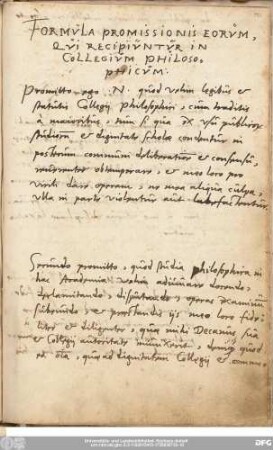 FORMVLA PROMISSIONIS EORVM,
QVI RECIPIVNTVR IN
COLLEGIVM PHILOSO,
PHICVM.
Promitto ego .N. quod velim legibus et
statutis Collegij Philosophici, cum traditis
a maioribus, tum si qua ex usu publico
studiorum et dignitate scholae condentur in
posterum communi deliberatione et consensu,
reverenter obtemperare, et meo loco pro
virili dare operam, ne mea aliqua culpa,
ulla in parte violentur aut labefactentur.
Secundo promitto, quod studia philosophica in
hac Academia velim adiuvare docendo,
declamitando, disputando, operas examinum
subeundo, et praestando ijs meo loco fide
liter et diligenter, quae mihi Decanus sua
et Collegij autoritate denique quod
ad ea, quae ad dignitatem Collegij et
Universitäts- und Landesbibliothek Sachsen-Anhalt
DFG